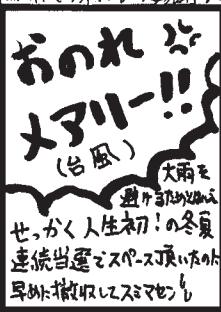 おのれ
メアリー!!
(台風)
大雨を
避けるためとはいえ
せっかく人生初!の冬夏
連続当選でスペース頂いたのに
早めに撤収してスミマセン